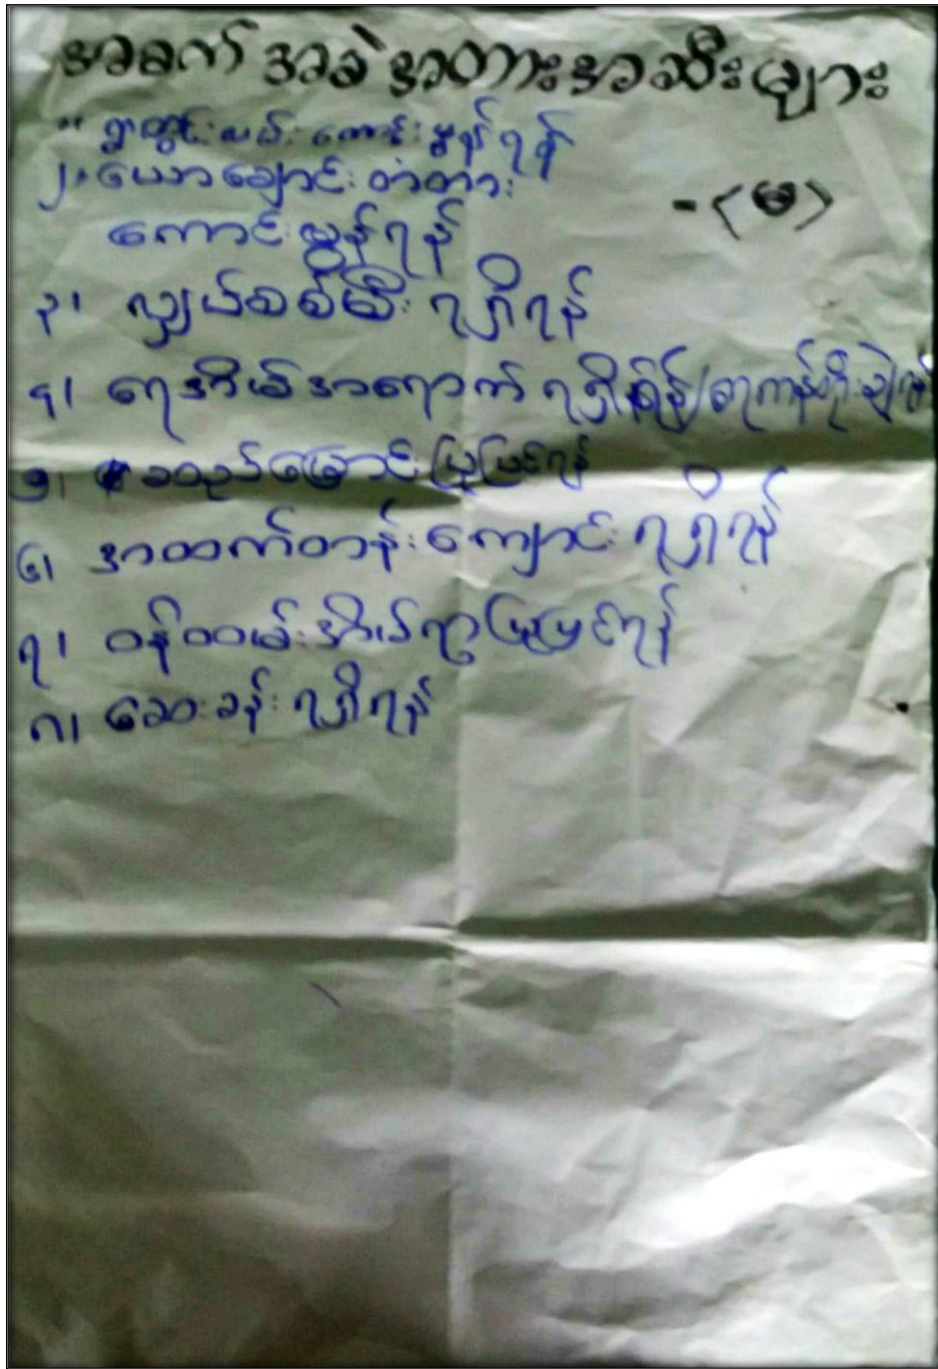 အခက် အခဲ အတားအဆီးများ
၁။ ရွာတွင်းလမ်း ကောင်းမွန်ရန်
၂။ ယောချောင်းတံတား
- (မ)
ကောင်းမွန်ရန်
၃။ လျှပ်စစ်မီး ရရှိရန်
၄။ ရေအိမ်အရောက် ရရှိရန်/
၅။ မြောင်းပြုပြင်ရန်
၆။ အထက်တန်းကျောင်း ရရှိရန်
၇။ ဝန်ထမ်းအိမ်ရာပြုပြင်ရန်
၈။ ဆေးခန်း ရရှိရန်